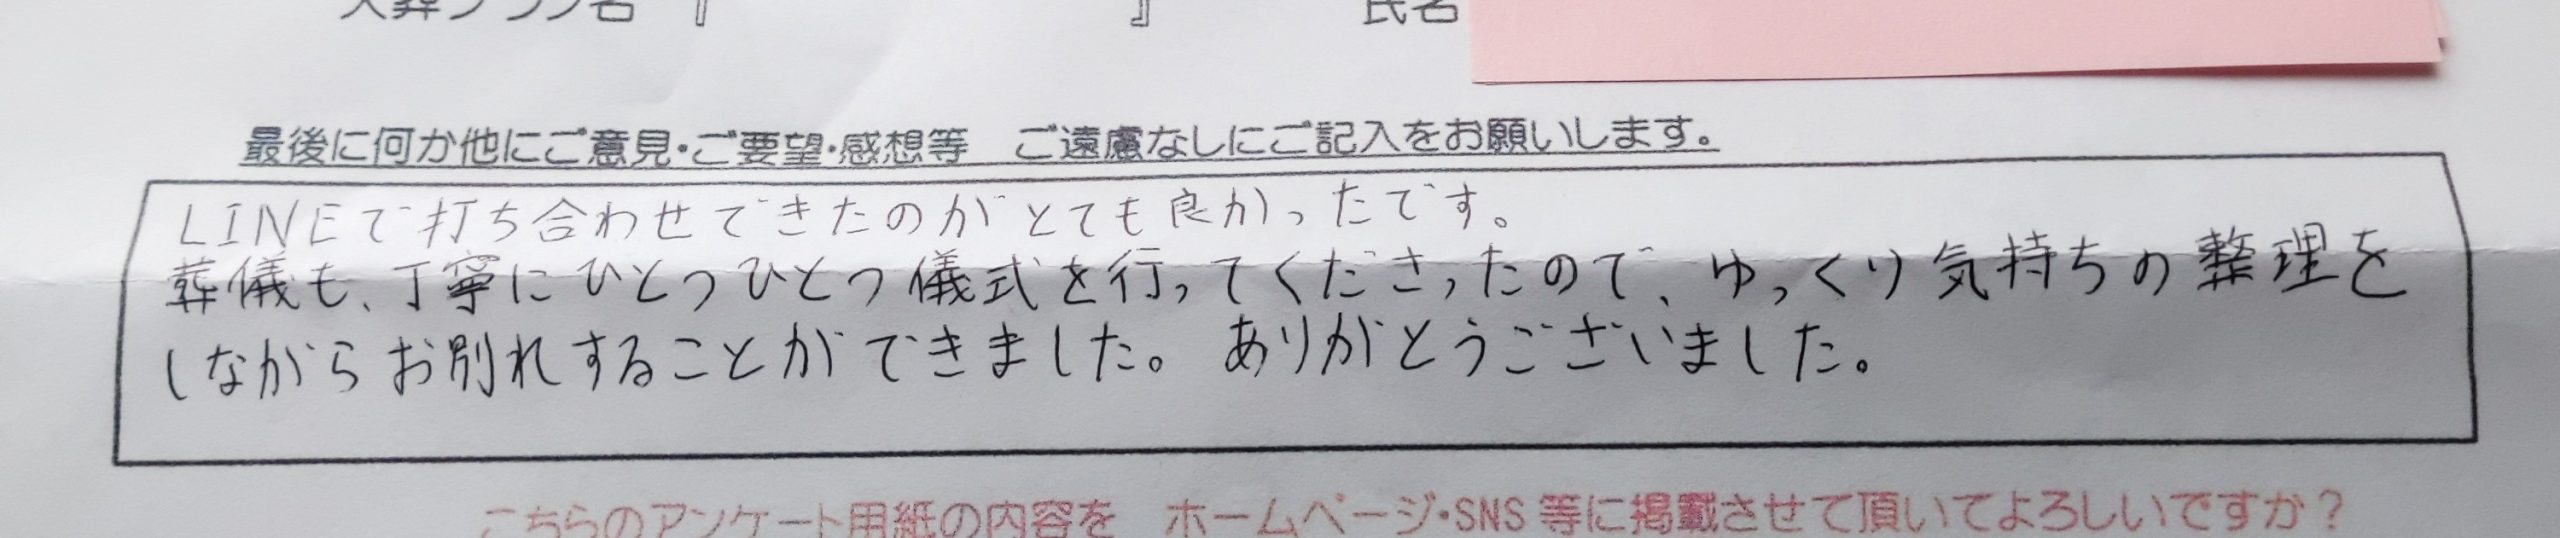 『　　　　　　　』　氏名
最後に何か他にご意見・ご要望・感想等　ご遠慮なしにご記入をお願いします。
LINEで打ち合わせできたのがとても良かったです。
葬儀も、丁寧にひとつひとつ儀式を行ってくださったので、ゆっくり気持ちの整理を
しながらお別れすることができました。ありがとうございました。
こちらのアンケート用紙の内容を　ホームページ・SNS等に掲載させて頂いてよろしいですか？